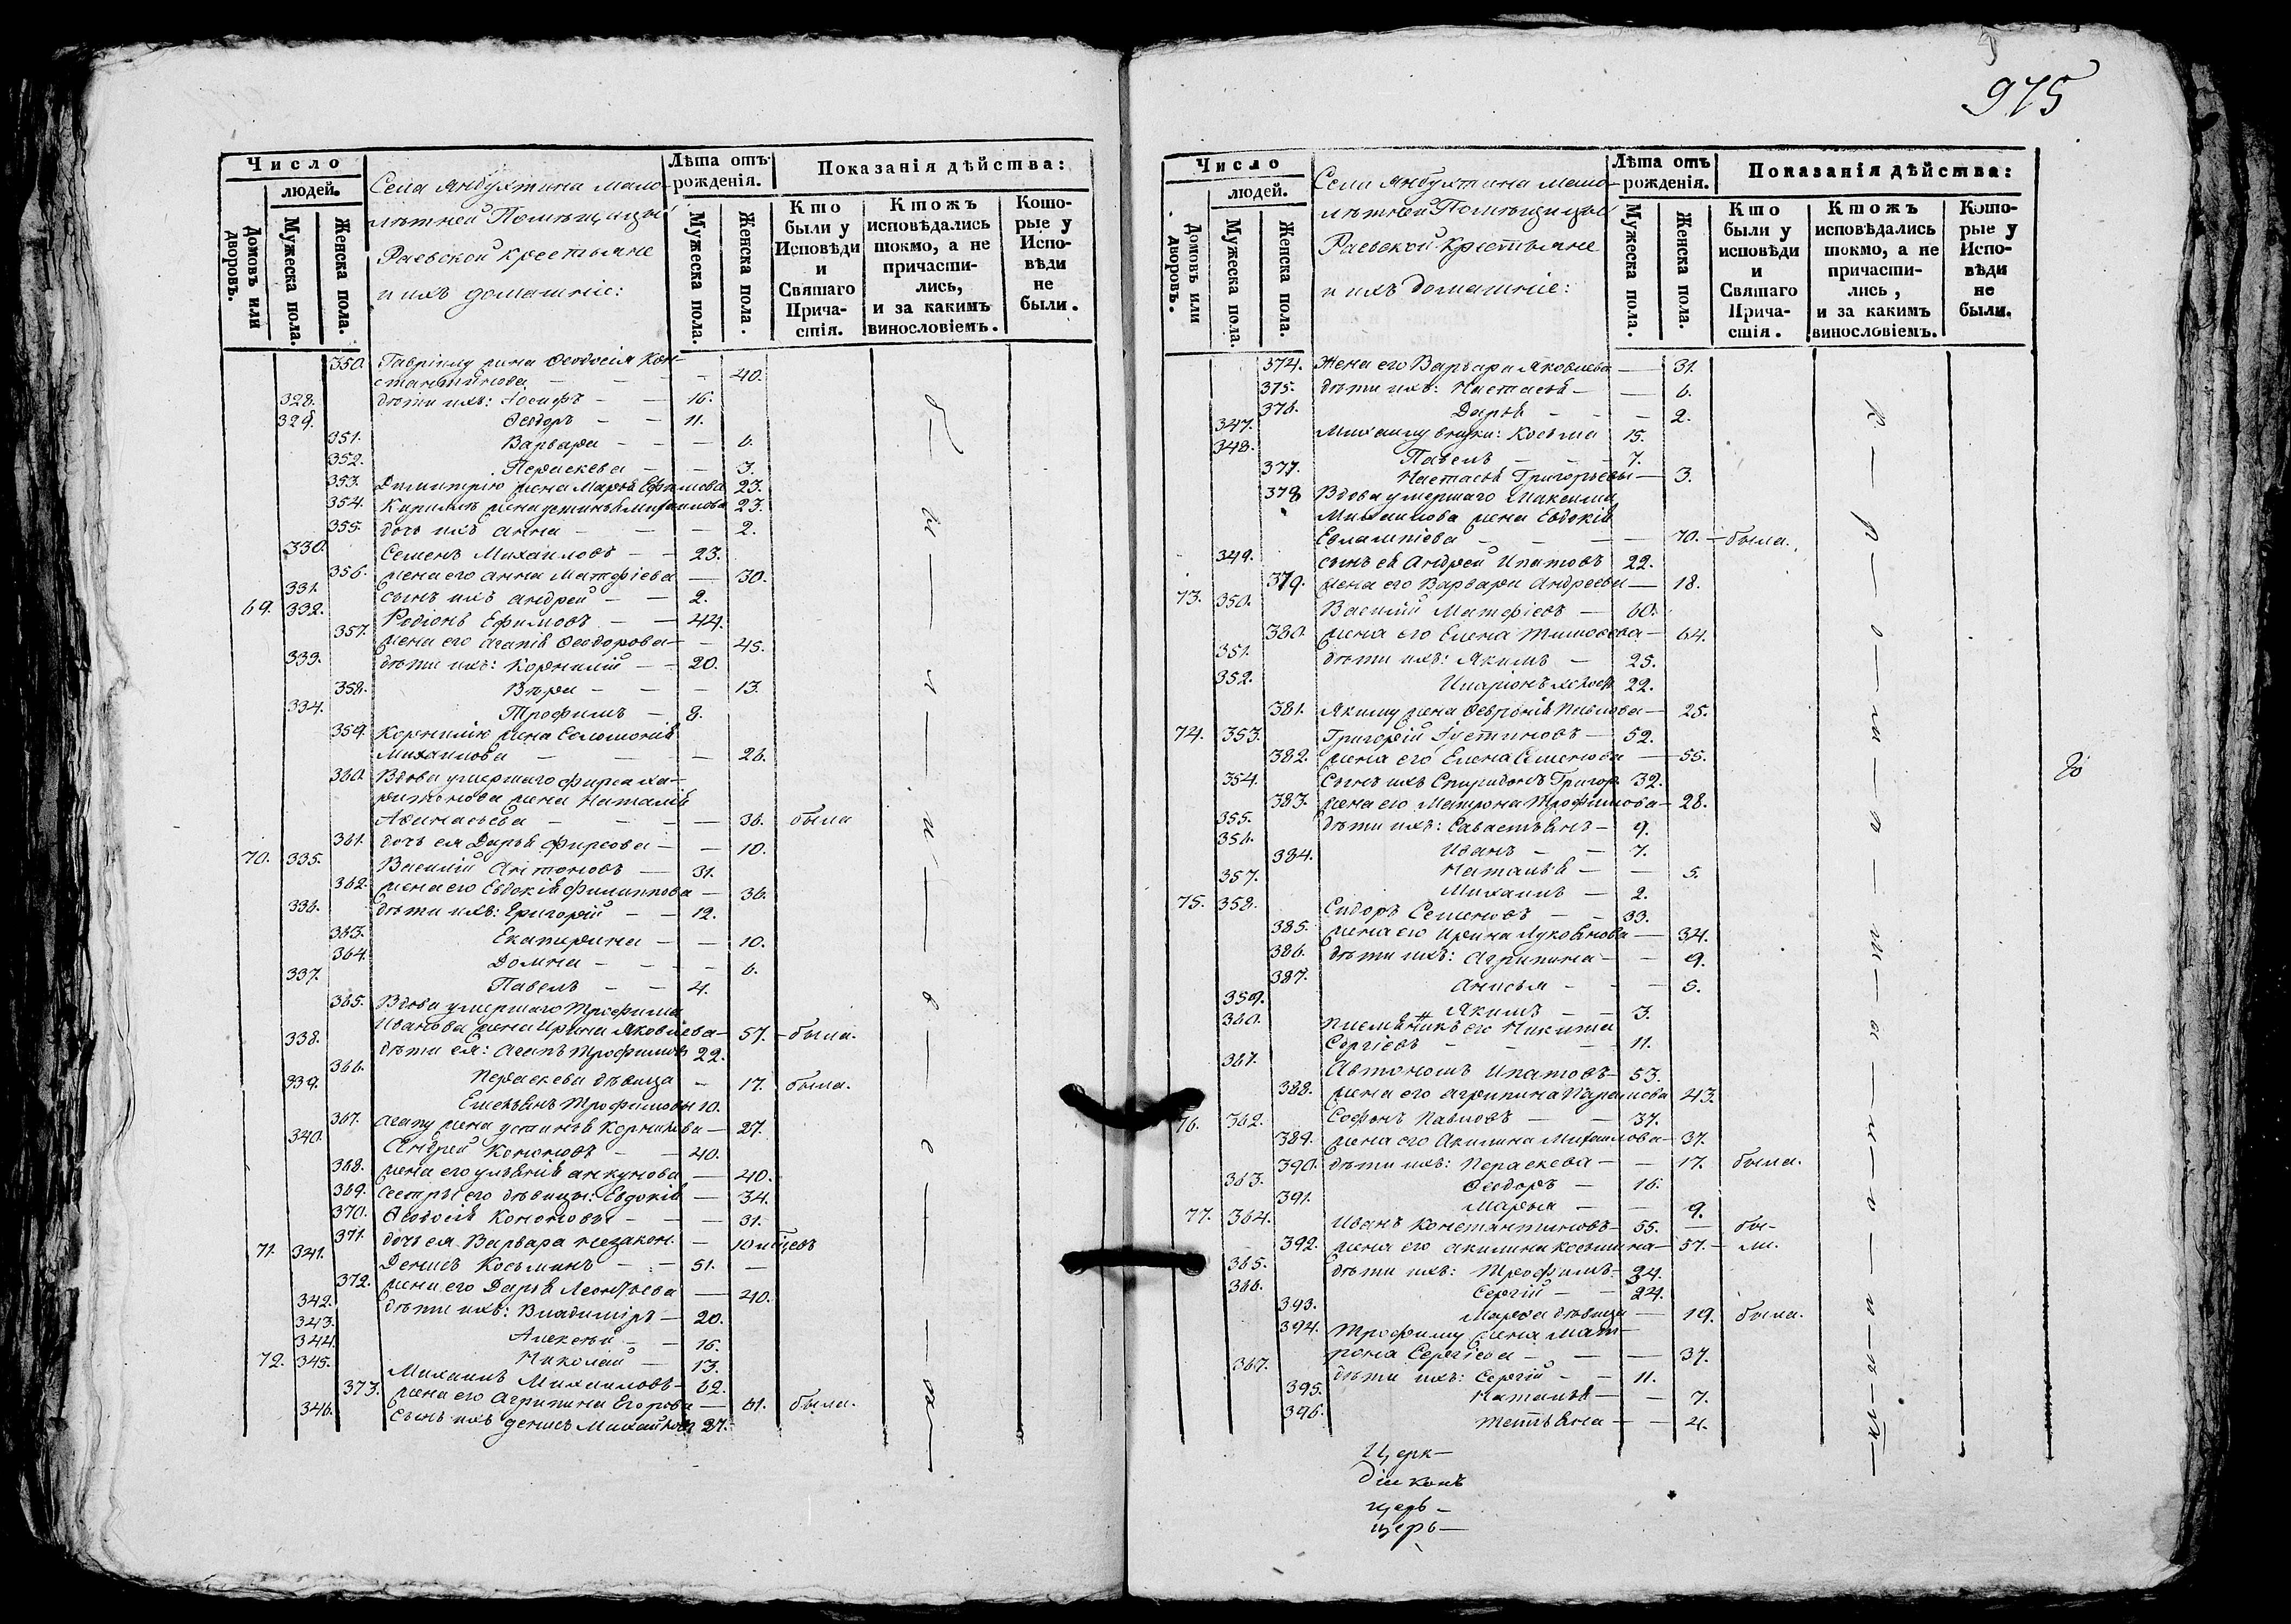 975
Число
людей.
Домовъ или дворовъ.
Мужеска пола.
Женска пола.
Села Янбухтина мало-
лѣтней Помѣщицы
Раевской крестьяне
и ихъ домашніе:
Лѣта отъ рожденія.
Мужеска пола.
Женска пола.
Показанія дѣйства:
Кто были у Исповѣди и Святаго Прича-стія.
Ктожъ исповѣдались токмо, а не причасти-лись, и за какимъ винословіемъ.
Кото-рые у Испо-вѣди не были.
350. Гавріилу жена Ѳеодосія Кон-
стантинова — — — 40.
328. дѣти ихъ: Іосифъ — — 16.
329. Ѳеодоръ — — 11.
351. Варвара — — — 6.
352. Параскева — — 3.
353. Димитрію жена Марья Ефимова 23.
354. Кирилѣ жена Устинья Михаилова 23.
355. дочь ихъ Анна — — — 2.
330. Семенъ Михаиловъ — — 23.
356. жена его Анна Матфіева — 30.
331. сынъ ихъ Андрей — — 2.
69. 332. Родіонъ Ефимовъ — — 44.
357. жена его Агапія Ѳеодорова — — 45.
333. дѣти ихъ: Корнилій — — 20.
358. Вѣра — — — 13.
334. Трофимъ — 8.
359. Корнилію жена Соломонія
Михаилова — — — 26.
360. Вдова умершаго Фирса Ха-
ритонова жена Наталія
Аѳанасьева — — — — 36. была
361. дочь ея Дарья Фирсова — — 10.
70. 335. Василій Антоновъ — 31.
362. жена его Евдокія Филиппова — 36.
336. дѣти ихъ: Григорій — — 12.
363. Екатерина — — 10.
364. Домна — — — 6.
337. Павелъ — — 4.
365. Вдова умершаго Трофима
Иванова жена Ирина Яковлева — 57. — была.
338. дѣти ея: Агапъ Трофимовъ 22.
366. Параскева дѣвица — 17. была.
339. Емельянъ Трофимовы 10.
367. Агапу жена Устинья Корнилова — 27.
340. Андрей Кононовъ — — 40.
368. жена его Ульянія Анкунова — 40.
369. сестры его дѣвицы: Евдокія — 34.
370. Ѳеодосія Кононовы — — — 31.
371. дочь ея Варвара незакон. — 10 мѣсцевъ
71. 341. Денисъ Косьминъ — — 51. —
372. жена его Дарья Леонтьева — 40.
342. дѣти ихъ: Владиміръ — 20.
343. Алексѣй — — 16.
344. Николай — 13.
72. 345. Михаилъ Михаиловъ — 62.
373. жена его Агрипина Егорова — 61. была.
346. Сынъ ихъ Денисъ Михайловъ 27.
Число
людей.
Домовъ или дворовъ.
Мужеска пола.
Женска пола.
Села Янбухтина мало-
лѣтней Помѣщицы
Раевской Крестьяне
и ихъ домашніе:
Лѣта отъ рожденія.
Мужеска пола.
Женска пола.
Показанія дѣйства:
Кто были у исповѣди и Святаго Прича-стія.
Ктожъ исповѣдались токмо, а не причасти-лись, и за какимъ винословіемъ.
Кото-рые у Испо-вѣди не были.
374. Жена его Варвара Яковлева — 31.
375. дѣти ихъ: Настасья — — 6.
376. Дарья — — — 2.
347. Михаилу внуки: Косьма 15.
348. Павелъ — — — 7.
377. Настасья Григорьевы — 3.
378 Вдова умершаго Максима
Михаилова жена Евдокія
Евлампіева — — — — 70. — была.
349. сынъ ея Андрей Ипатовъ 22.
379. жена его Варвара Андреева — 18.
73. 350. Василій Матфіевъ — 60.
380. жена его Елена Тимоѳеева — 64.
351. дѣти ихъ: Якимъ — 25.
352. Иларіонъ холост 22.
381. Якиму жена Ѳевронія Павлова — 25.
74. 353. Григорій Іустиновъ — 52.
382. жена его Елена Семенова — 55.
354. Сынъ ихъ Спиридонъ Григор. 32.
383. жена его Матрона Трофимова — 28.
355. дѣти ихъ: Савастьянъ — 9.
356. Иванъ — — 7.
384. Наталья — — 5.
357. Михаилъ — 2.
75. 358. Сидоръ Семеновъ — — 33.
385. жена его Ирина Лукоянова — 34.
386. дѣти ихъ: Агрипина — — 9.
387. Анисья — — — 5.
359. Якимъ — — 3.
360. племянникъ его Никита
Сергіевъ — — — 11.
361. Автономъ Ипатовъ — 53.
388. жена его Агрипина Парамова 43.
76. 362. Софонъ Павловъ — — 37.
389. жена его Акилина Михаилова — 37.
390. дѣти ихъ: Параскева — — 17. была.
363. Ѳеодоръ — 16.
391. Марья — — 9.
77. 364. Иванъ Константиновъ — 55. — бы-
392. жена его Акилина Косьмина — 57. — ли.
365. дѣти ихъ: Трофимъ — 34.
366. Сергій — — 24.
393. Марѳа дѣвица — 19. была.
394. Трофиму жена Мат-
рона Сергіева — — — 37.
367. дѣти ихъ: Сергій — — 11.
395. Наталья — — 7.
396. Тетьяна — — 4.
Церк —
діаконъ
церь —
церь —